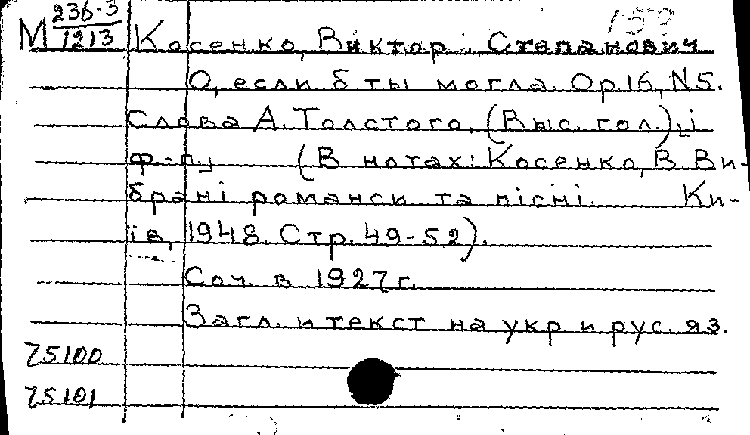 М 236-3/1213
Косенко, Виктор Степанович
О, если б ты могла. Ор.16, N5.
Слова А. Толстого. (Выс. гол.) і
ф-п. (В нотах: Косенко, В. Ви-
брані романси та пісні. Ки-
ів, 1948. Стр. 49-52).
Соч. в 1927 г.
Загл. и текст на укр и рус. яз.
75100
75101